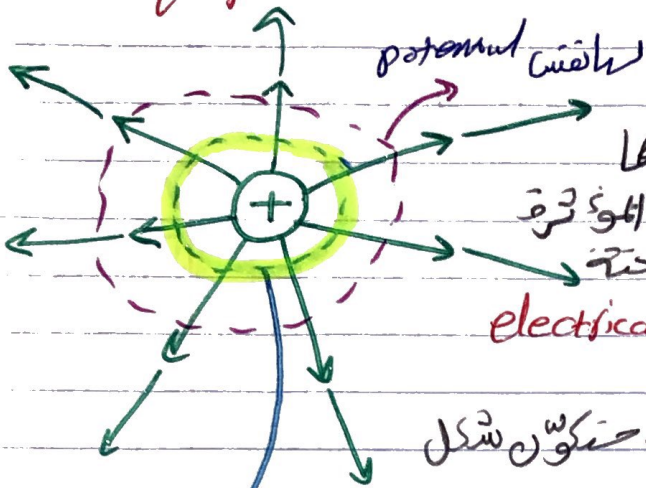 potential لها نفس
+
لها
المؤثرة
electrica
حتكون شكل